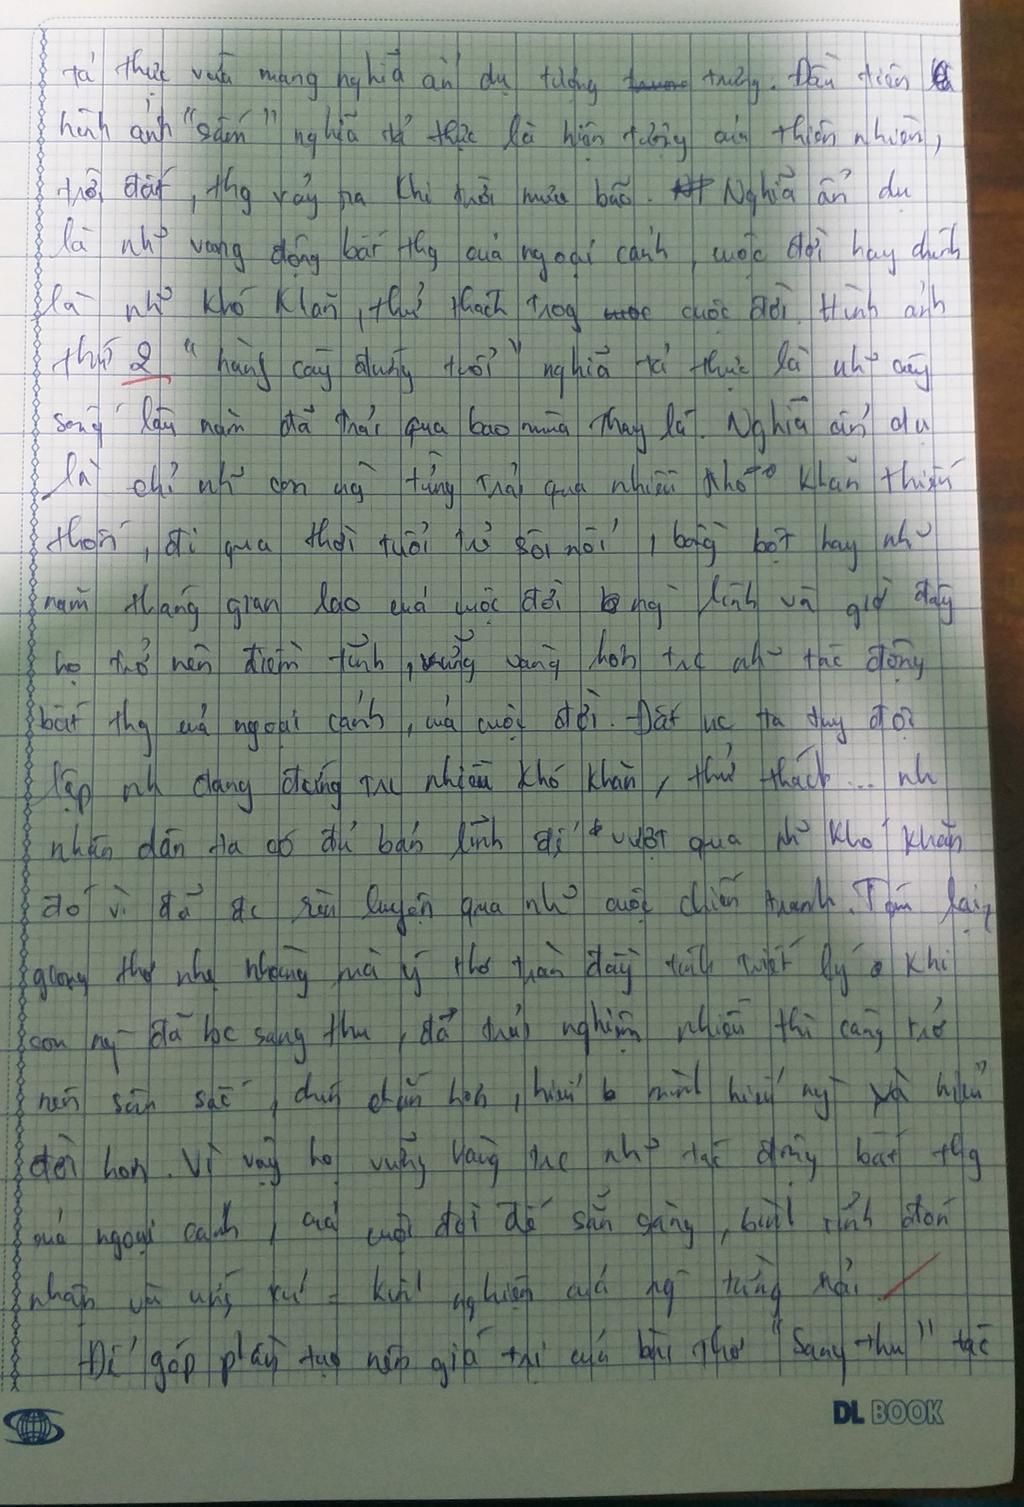 tả thực vừa mang nghĩa ẩn dụ tượng trưng. Đầu tiên là
hình ảnh "sấm" nghĩa tả thực là hiện tượng của thiên nhiên,
trời đất, thg xảy ra khi trời mưa bão. Nghĩa ẩn dụ
là nhữ vang động bất thg của ngoại cảnh, cuộc đời hay chính
là nhữ khó khăn, thử thách trog cuộc đời. Hình ảnh
thứ 2 "hàng cây đứng tuổi" nghĩa tả thực là nhữ cây
sống lâu năm đã trải qua bao mùa thay lá. Nghĩa ẩn dụ
là chỉ nhữ con ng từng trải qua nhiều khó khăn thiếu
thốn, đi qua thời tuổi trẻ sôi nổi, bồng bột hay nhữ
năm tháng gian lao của cuộc đời ng lính và giờ đây
họ trở nên điềm tĩnh, vững vàng hơn trc nhữ tác động
bất thg của ngoại cảnh, của cuộc đời. Đất nc ta tuy đội
lập nh đang đứng trc nhiều khó khăn, thử thách ... nh
nhân dân ta có đủ bản lĩnh để vượt qua nhữ khó khăn
đó vì đã đc rèn luyện qua nhữ cuộc chiến tranh. Tóm lại,
giọng thơ nhẹ nhàng mà ý thơ tràn đầy tính triết lý khi
con ng đã bc sang thu, đã trải nghiệm nhiều thì càng trở
nên sâu sắc, chín chắn hơn, hiểu mình hiểu ng và hiểu
đời hơn. Vì vậy họ vững vàng trc nhữ tác động bất thg
của ngoại cảnh, của cuộc đời để sẵn sàng, bình tĩnh đón
nhận và ứng xử = kinh nghiệm của ng từng trải.
Để góp phần tạo nên giá trị của bài thơ "Sang thu" tác
DL BOOK